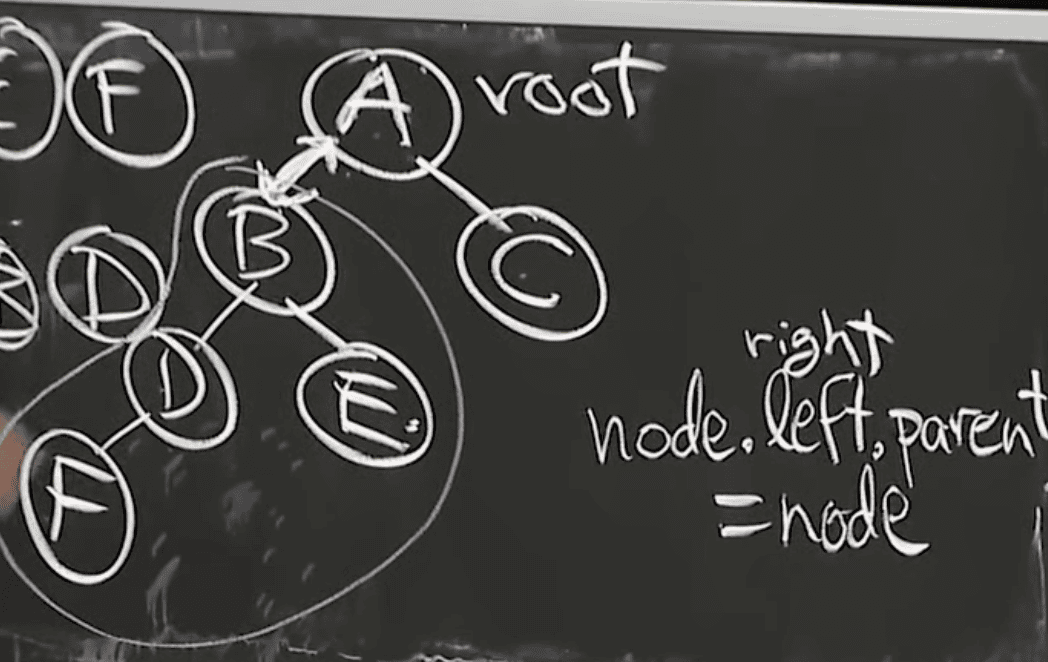 F
A root
B
C
D
D
E
F
right
node.left.parent
=node